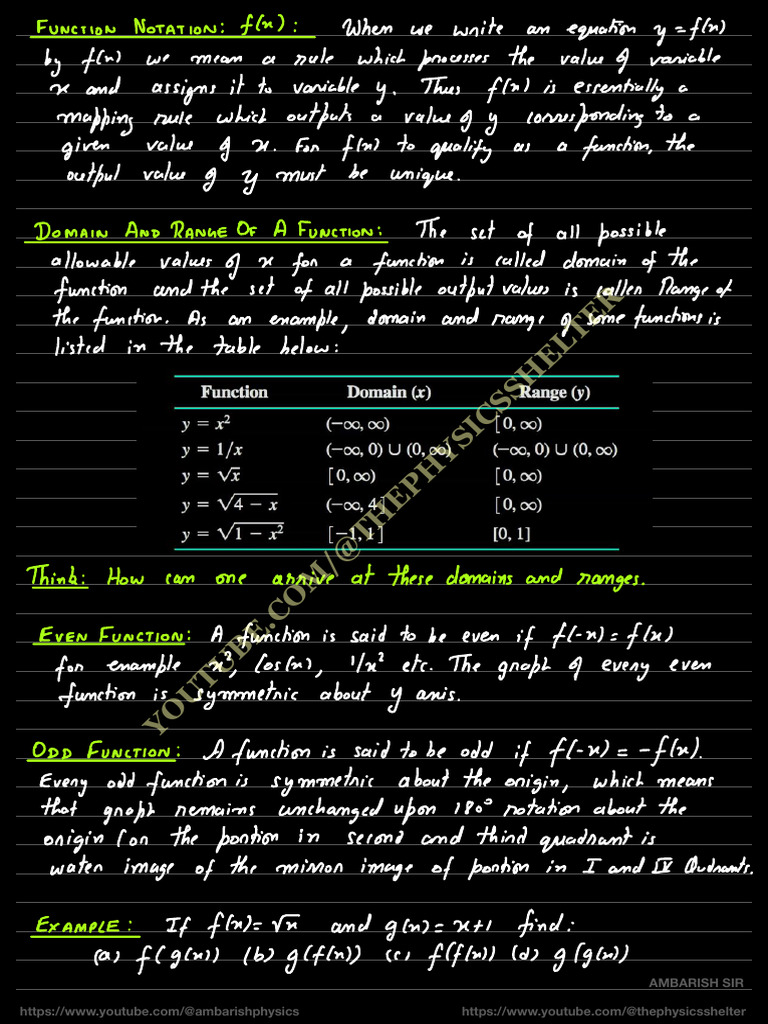 FUNCTION NOTATION: f(x): When we write an equation y = f(x)
by f(x) we mean a rule which processes the value of variable
x and assigns it to variable y. Thus f(x) is essentially a
mapping rule which outputs a value of y corresponding to a
given value of x. For f(x) to qualify as a function, the
output value of y must be unique.
DOMAIN AND RANGE OF A FUNCTION: The set of all possible
allowable values of x for a function is called domain of the
function and the set of all possible output values is called Range of
the function. As an example, domain and range of some functions is
listed in the table below:
Function Domain (x) Range (y)
y = x² (−∞, ∞) [0, ∞)
y = 1/x (−∞, 0) ∪ (0, ∞) (−∞, 0) ∪ (0, ∞)
y = √x [0, ∞) [0, ∞)
y = √(4 − x) (−∞, 4] [0, ∞)
y = √(1 − x²) [−1, 1] [0, 1]
Think: How can one arrive at these domains and ranges.
EVEN FUNCTION: A function is said to be even if f(-x) = f(x)
for example x², Cos(x), 1/x² etc. The graph of every even
function is symmetric about y axis.
ODD FUNCTION: A function is said to be odd if f(-x) = -f(x).
Every odd function is symmetric about the origin, which means
that graph remains unchanged upon 180° rotation about the
origin (or the portion in second and third quadrant is
water image of the mirror image of portion in I and IV Qudrants.
EXAMPLE: If f(x) = √x and g(x) = x+1 find:
(a) f(g(x)) (b) g(f(x)) (c) f(f(x)) (d) g(g(x))
YOUTUBE.COM/@THEPHYSICSSHELTER
AMBARISH SIR
https://www.youtube.com/@ambarishphysics https://www.youtube.com/@thephysicsshelter